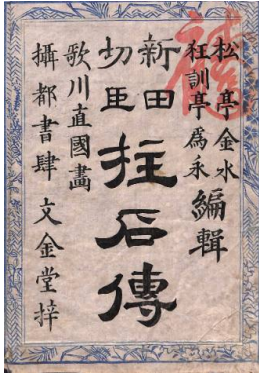 松亭金水
狂訓亭爲永
編輯
新田
功臣
柱石傳
歌川直國畫
攝都書肆 文金堂梓